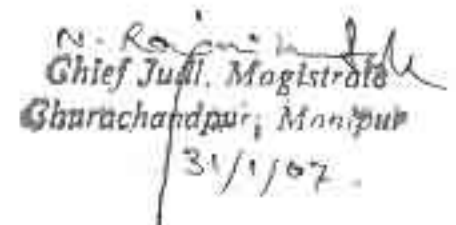 N.
Chief Judl. Magistrate
Churachandpur, Manipur
31/1/07.